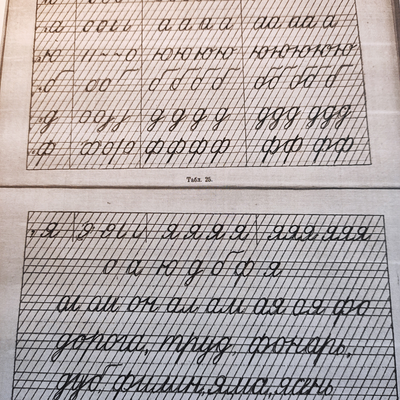 а а а а а аа аа а
ю ю ю ю ю ююю ююю
б б б б б бб бб б
д д д д д ддд ддд
ф ф ф ф ф фф фф
Табл. 25.
я я я я я яяя яяя
о а ю д б ф я
ам оч ал ам ая оя фо
дорога, труд, фонарь,
дуб, филин, яма, ясень